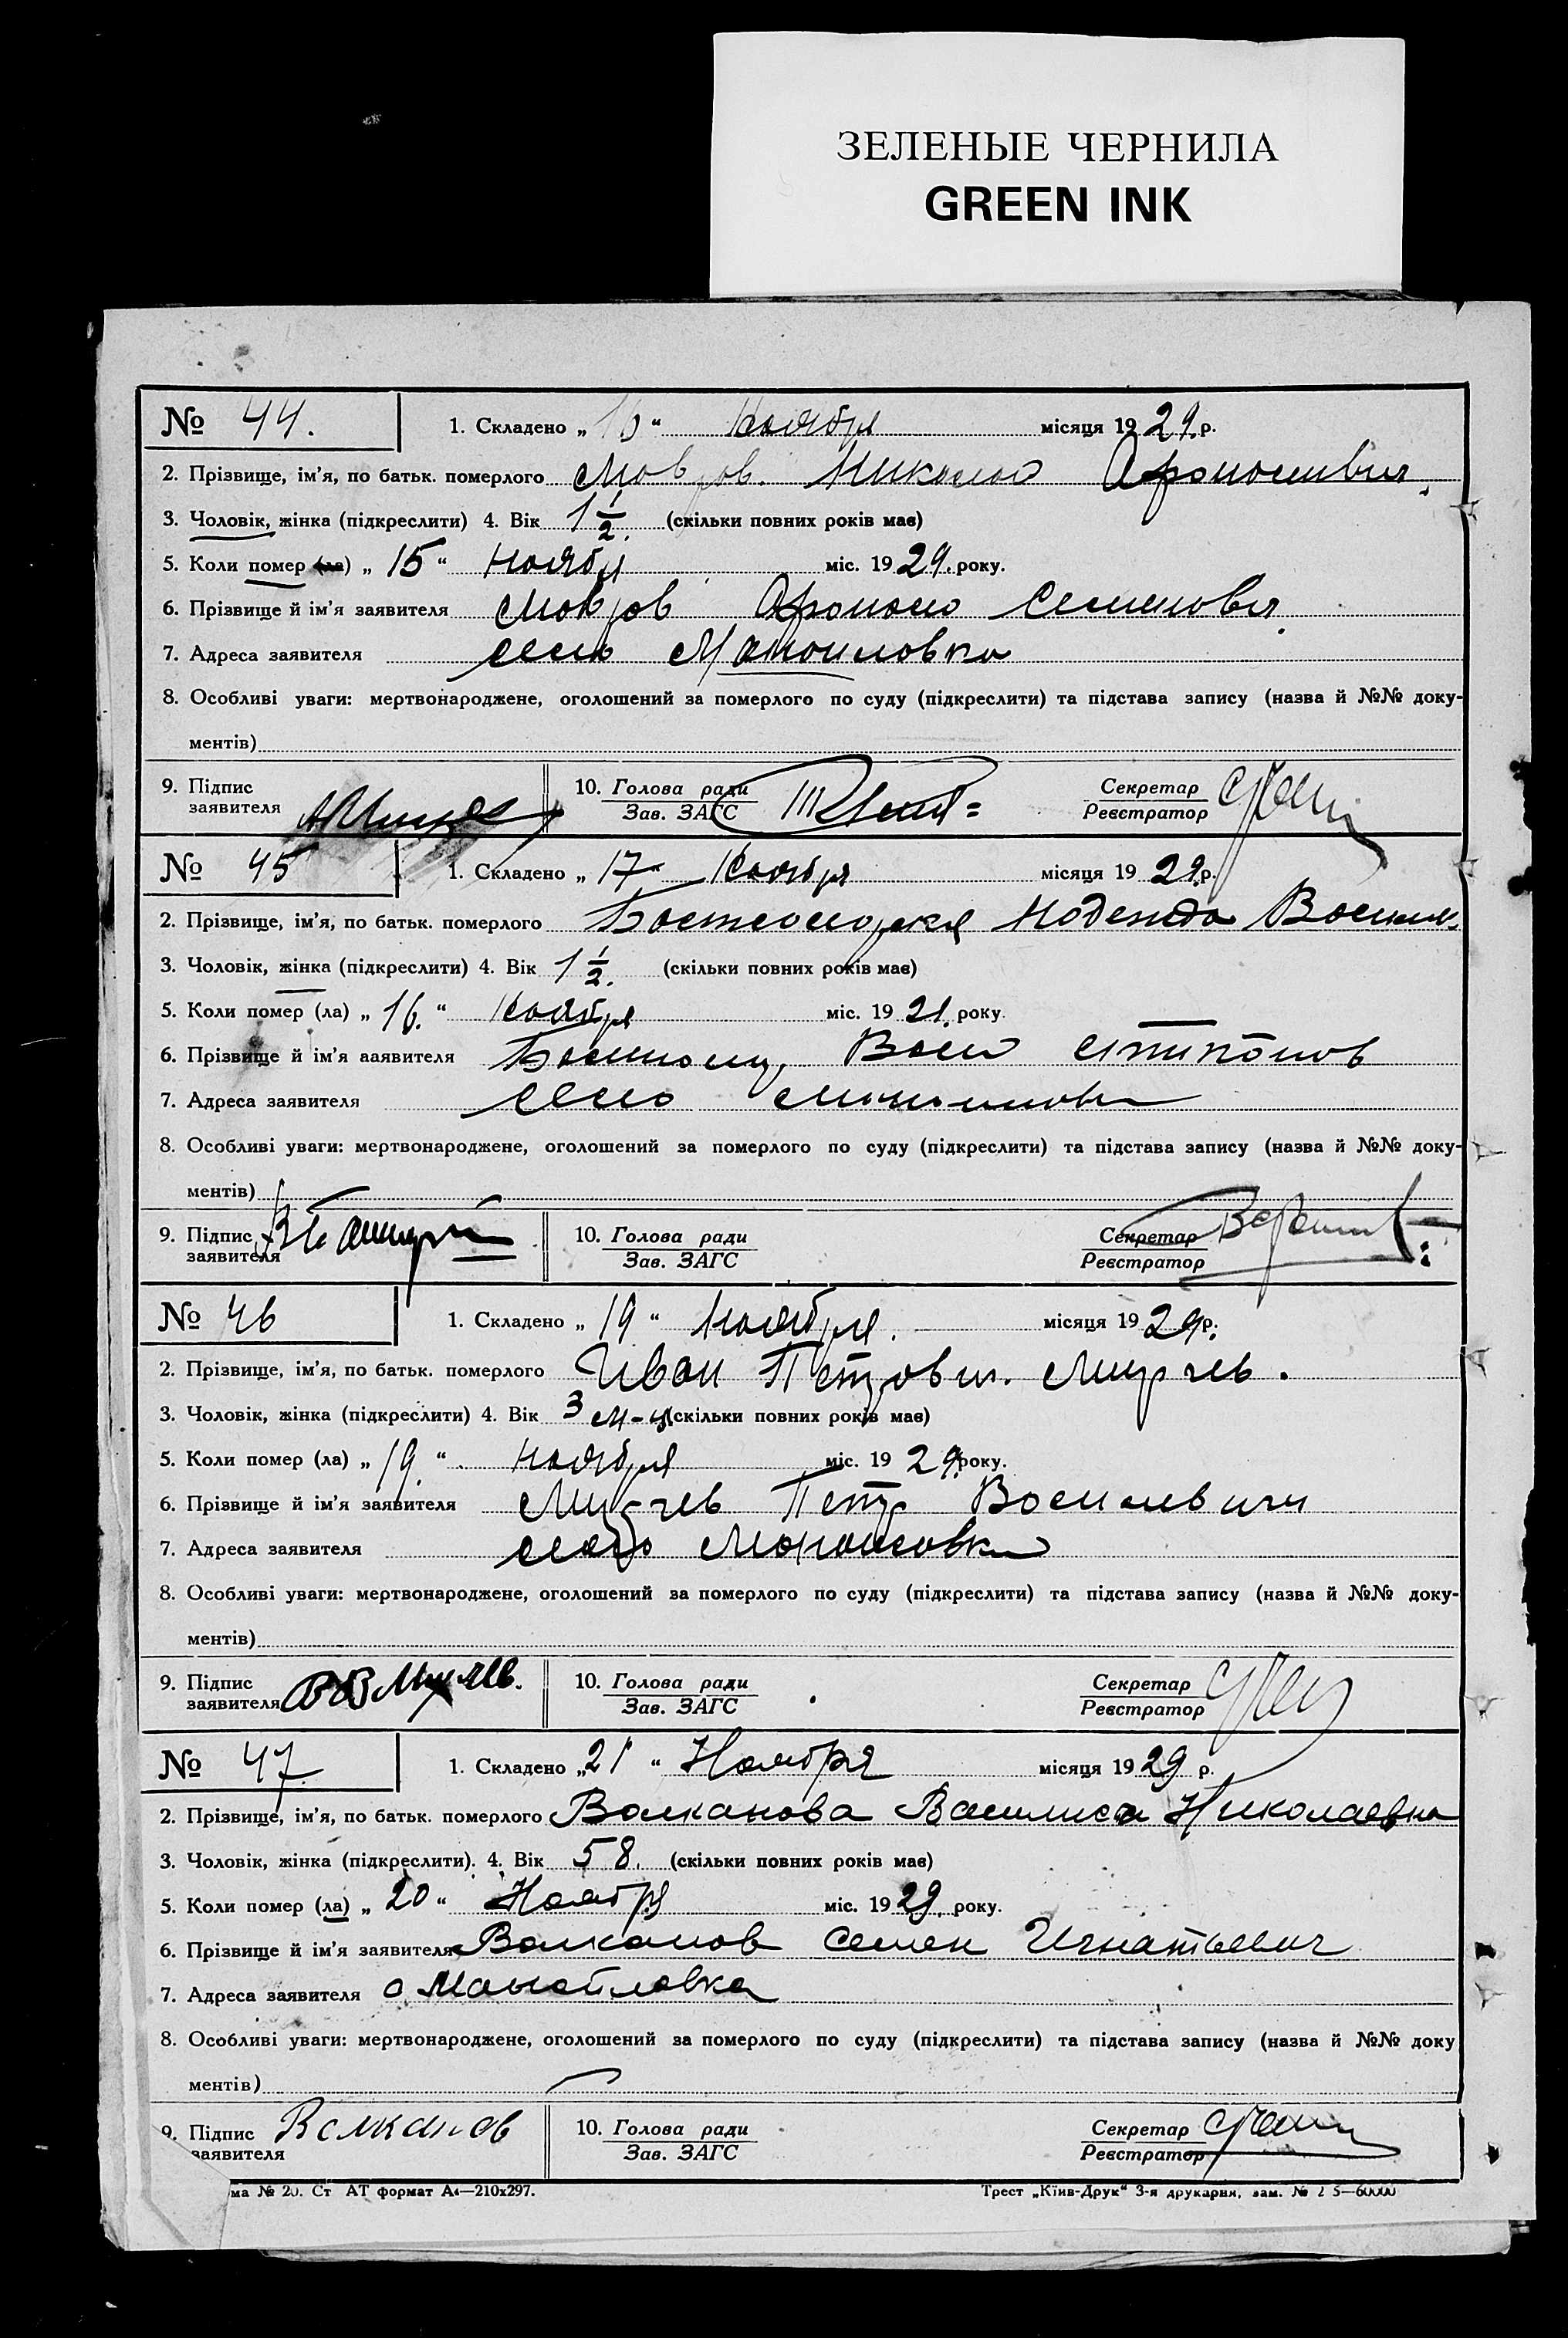 ЗЕЛЕНЫЕ ЧЕРНИЛА
GREEN INK
№ 44. 1. Складено „ “ Ноября місяця 1929.р.
2. Прізвище, ім’я, по батьк. померлого Мавров. Николай
3. Чоловік, жінка (підкреслити) 4. Вік 1 1/2. (скільки повних років має)
5. Коли помер (ла) „ 15 “ Ноября міс. 1929. року.
6. Прізвище й ім’я заявителя Мавров
7. Адреса заявителя село Манойловка
8. Особливі уваги: мертвонароджене, оголошений за померлого по суду (підкреслити) та підстава запису (назва й №№ доку-
ментів)
9. Підпис 10. Голова ради Секретар
заявителя Зав. ЗАГС Реєстратор
№ 45 1. Складено „ 17 “ Ноября місяця 1929.р.
2. Прізвище, ім’я, по батьк. померлого Надежда
3. Чоловік, жінка (підкреслити) 4. Вік 1 1/2. (скільки повних років має)
5. Коли помер (ла) „ 16. “ Ноября міс. 19 року.
6. Прізвище й ім’я ааявителя
7. Адреса заявителя село
8. Особливі уваги: мертвонароджене, оголошений за померлого по суду (підкреслити) та підстава запису (назва й №№ доку-
ментів)
9. Підпис 10. Голова ради Секретар
заявителя Зав. ЗАГС Реєстратор
№ 46 1. Складено „ 19 “ Ноября. місяця 1929р.
2. Прізвище, ім’я, по батьк. померлого Иван Петрович. Мирчев.
3. Чоловік, жінка (підкреслити) 4. Вік 3 м-ц (скільки повних років має)
5. Коли помер (ла) „ 19. “ Ноября міс. 1929. року.
6. Прізвище й ім’я заявителя Мирчев Петр Василевич
7. Адреса заявителя село Манойловка
8. Особливі уваги: мертвонароджене, оголошений за померлого по суду (підкреслити) та підстава запису (назва й №№ доку-
ментів)
9. Підпис 10. Голова ради Секретар
заявителя Мирчев. Зав. ЗАГС Реєстратор
№ 47 1. Складено „21 “ Ноября місяця 1929 р.
2. Прізвище, ім’я, по батьк. померлого Волканова Василиса Николаевна
3. Чоловік, жінка (підкреслити). 4. Вік 58. (скільки повних років має)
5. Коли помер (ла) „ 20 “ Ноября міс. 1929. року.
6. Прізвище й ім’я заявителя Волканов Семен Игнатьевич
7. Адреса заявителя с Манойловка
8. Особливі уваги: мертвонароджене, оголошений за померлого по суду (підкреслити) та підстава запису (назва й №№ доку
ментів)
9. Підпис Волканов 10. Голова ради Секретар
заявителя Зав. ЗАГС Реєстратор
ма № 20. Ст АТ формат А4—210х297. Трест „Київ-Друк“ 3-я друкарня, зам. №